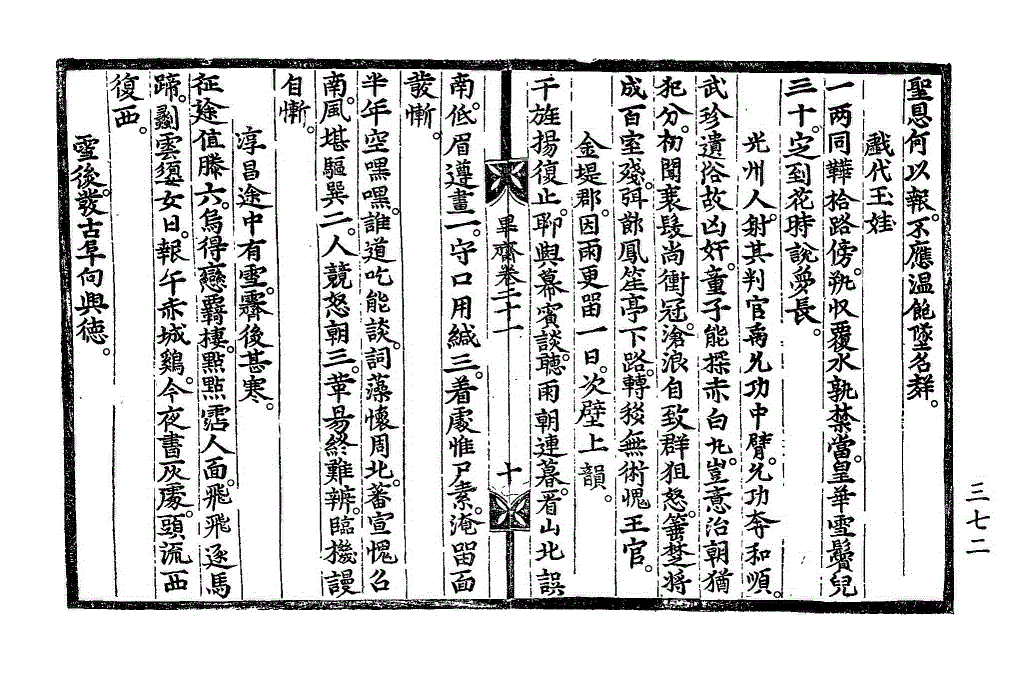 聖恩何以報。不應溫飽墜名群。
戲代玉娃
一兩同鞾拾路傍。孰收覆水孰禁當。皇華雪鬢兒
三十。定到花時說夢長。
光州人。射其判官禹允功中臂。允功李和順。
武珍遺俗故凶奸。童子能探赤白丸。豈意治朝猶
犯分。初聞裹髮尚衝冠。滄浪自致群狙怒。箠楚將
成百室殘。弭節鳳笙亭下路。轉移無術愧王官。
金堤郡。因雨更留一日。次壁上韻。
千旌揚復止。聊與幕賓談。聽雨朝連暮。看山北誤
南。低眉遵畫一。守口用緘三。着處惟尸素。淹留面
發慚。
半年空嘿嘿。誰道吃能談。詞藻懷周北。蕃宣愧召
南。風堪驅巽二。人競怒朝三。莘昜終難辨。臨機謾
自慚。
淳昌途中有雪。霽後甚寒。
征途値滕六。烏得戀覊棲。點點霑人面。飛飛逐馬
蹄。剡雲須女日。報午赤城鷄。今夜書灰處。頭流西
復西。
雪後發古阜向興德。
畢齋卷二十一
十
三七二